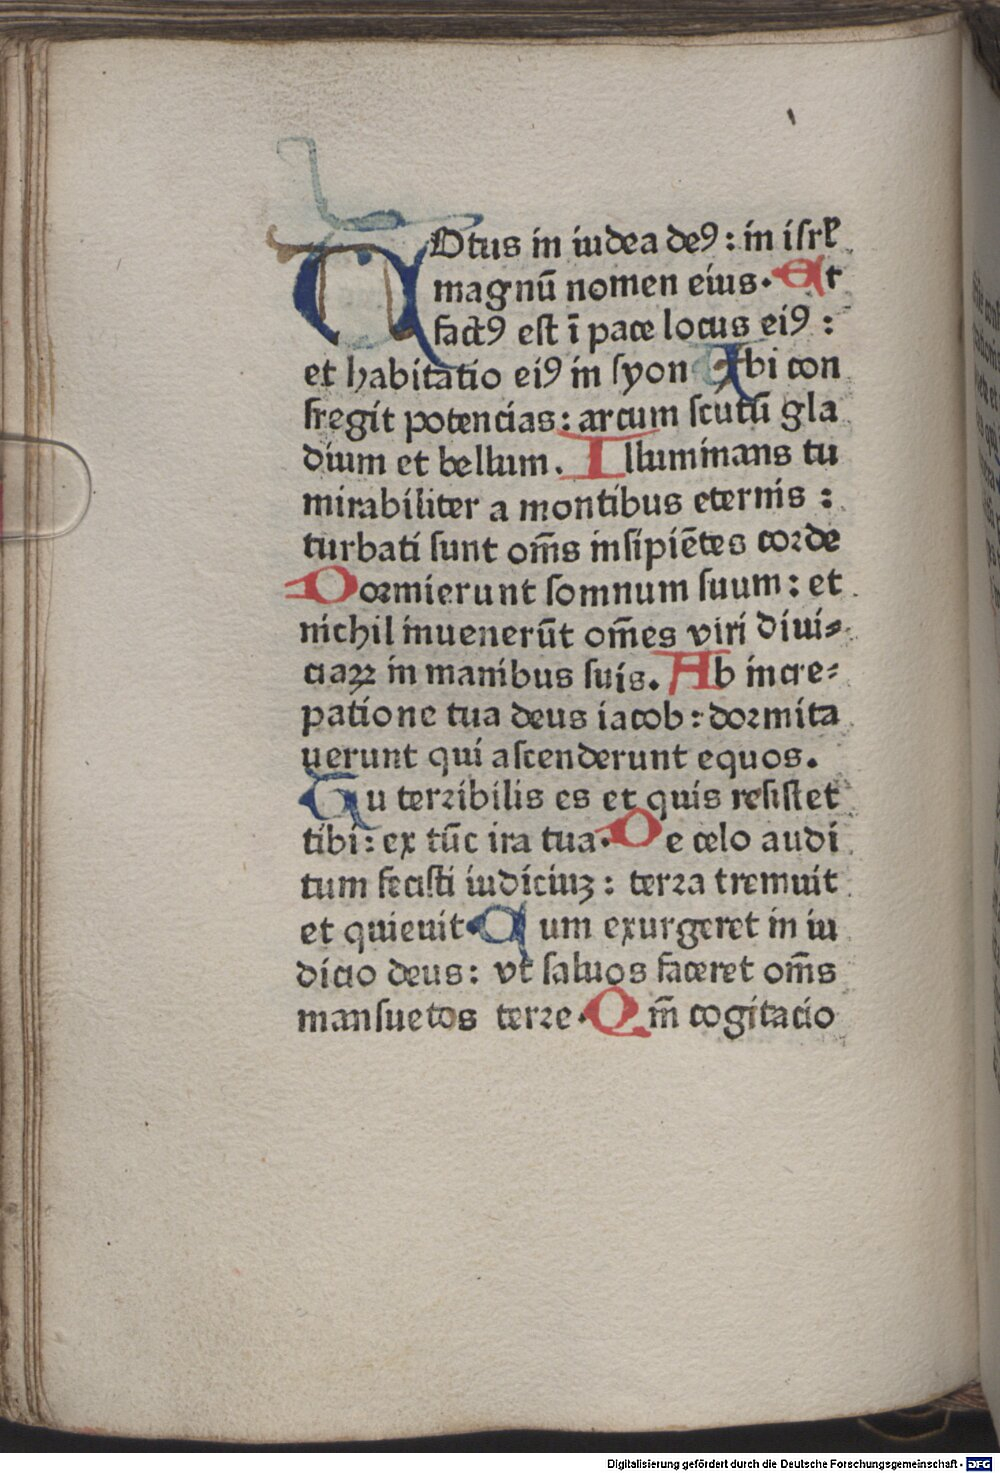 NOtus in iudea deꝰ : in iſrl̛
magnū nomen eius. Et
factꝰ eſt ī pace locus eiꝰ :
et habitatio eiꝰ in ſyon Vbi con
fregit potencias : arcum ſcutū gla
dium et bellum. Illuminans tu
mirabiliter a montibus eternis :
turbati ſunt om̄s inſipiētes corde
Dormierunt ſomnum ſuum : et
nichil inuenerūt om̄es viri diui⸗
ciaꝝ in manibus ſuis. Ab incre⸗
patione tua deus iacob : dormita
uerunt qui aſcenderunt equos.
Tu terribilis es et quis reſiſtet
tibi : ex tūc ira tua. De celo audi
tum feciſti iudiciuꝫ : terra tremuit
et quieuit. Cum exurgeret in iu
dicio deus : vt ſaluos faceret om̄s
manſuetos terre. Qm̄ cogitacio
Digitalisierung gefördert durch die Deutsche Forschungsgemeinschaft - DFG